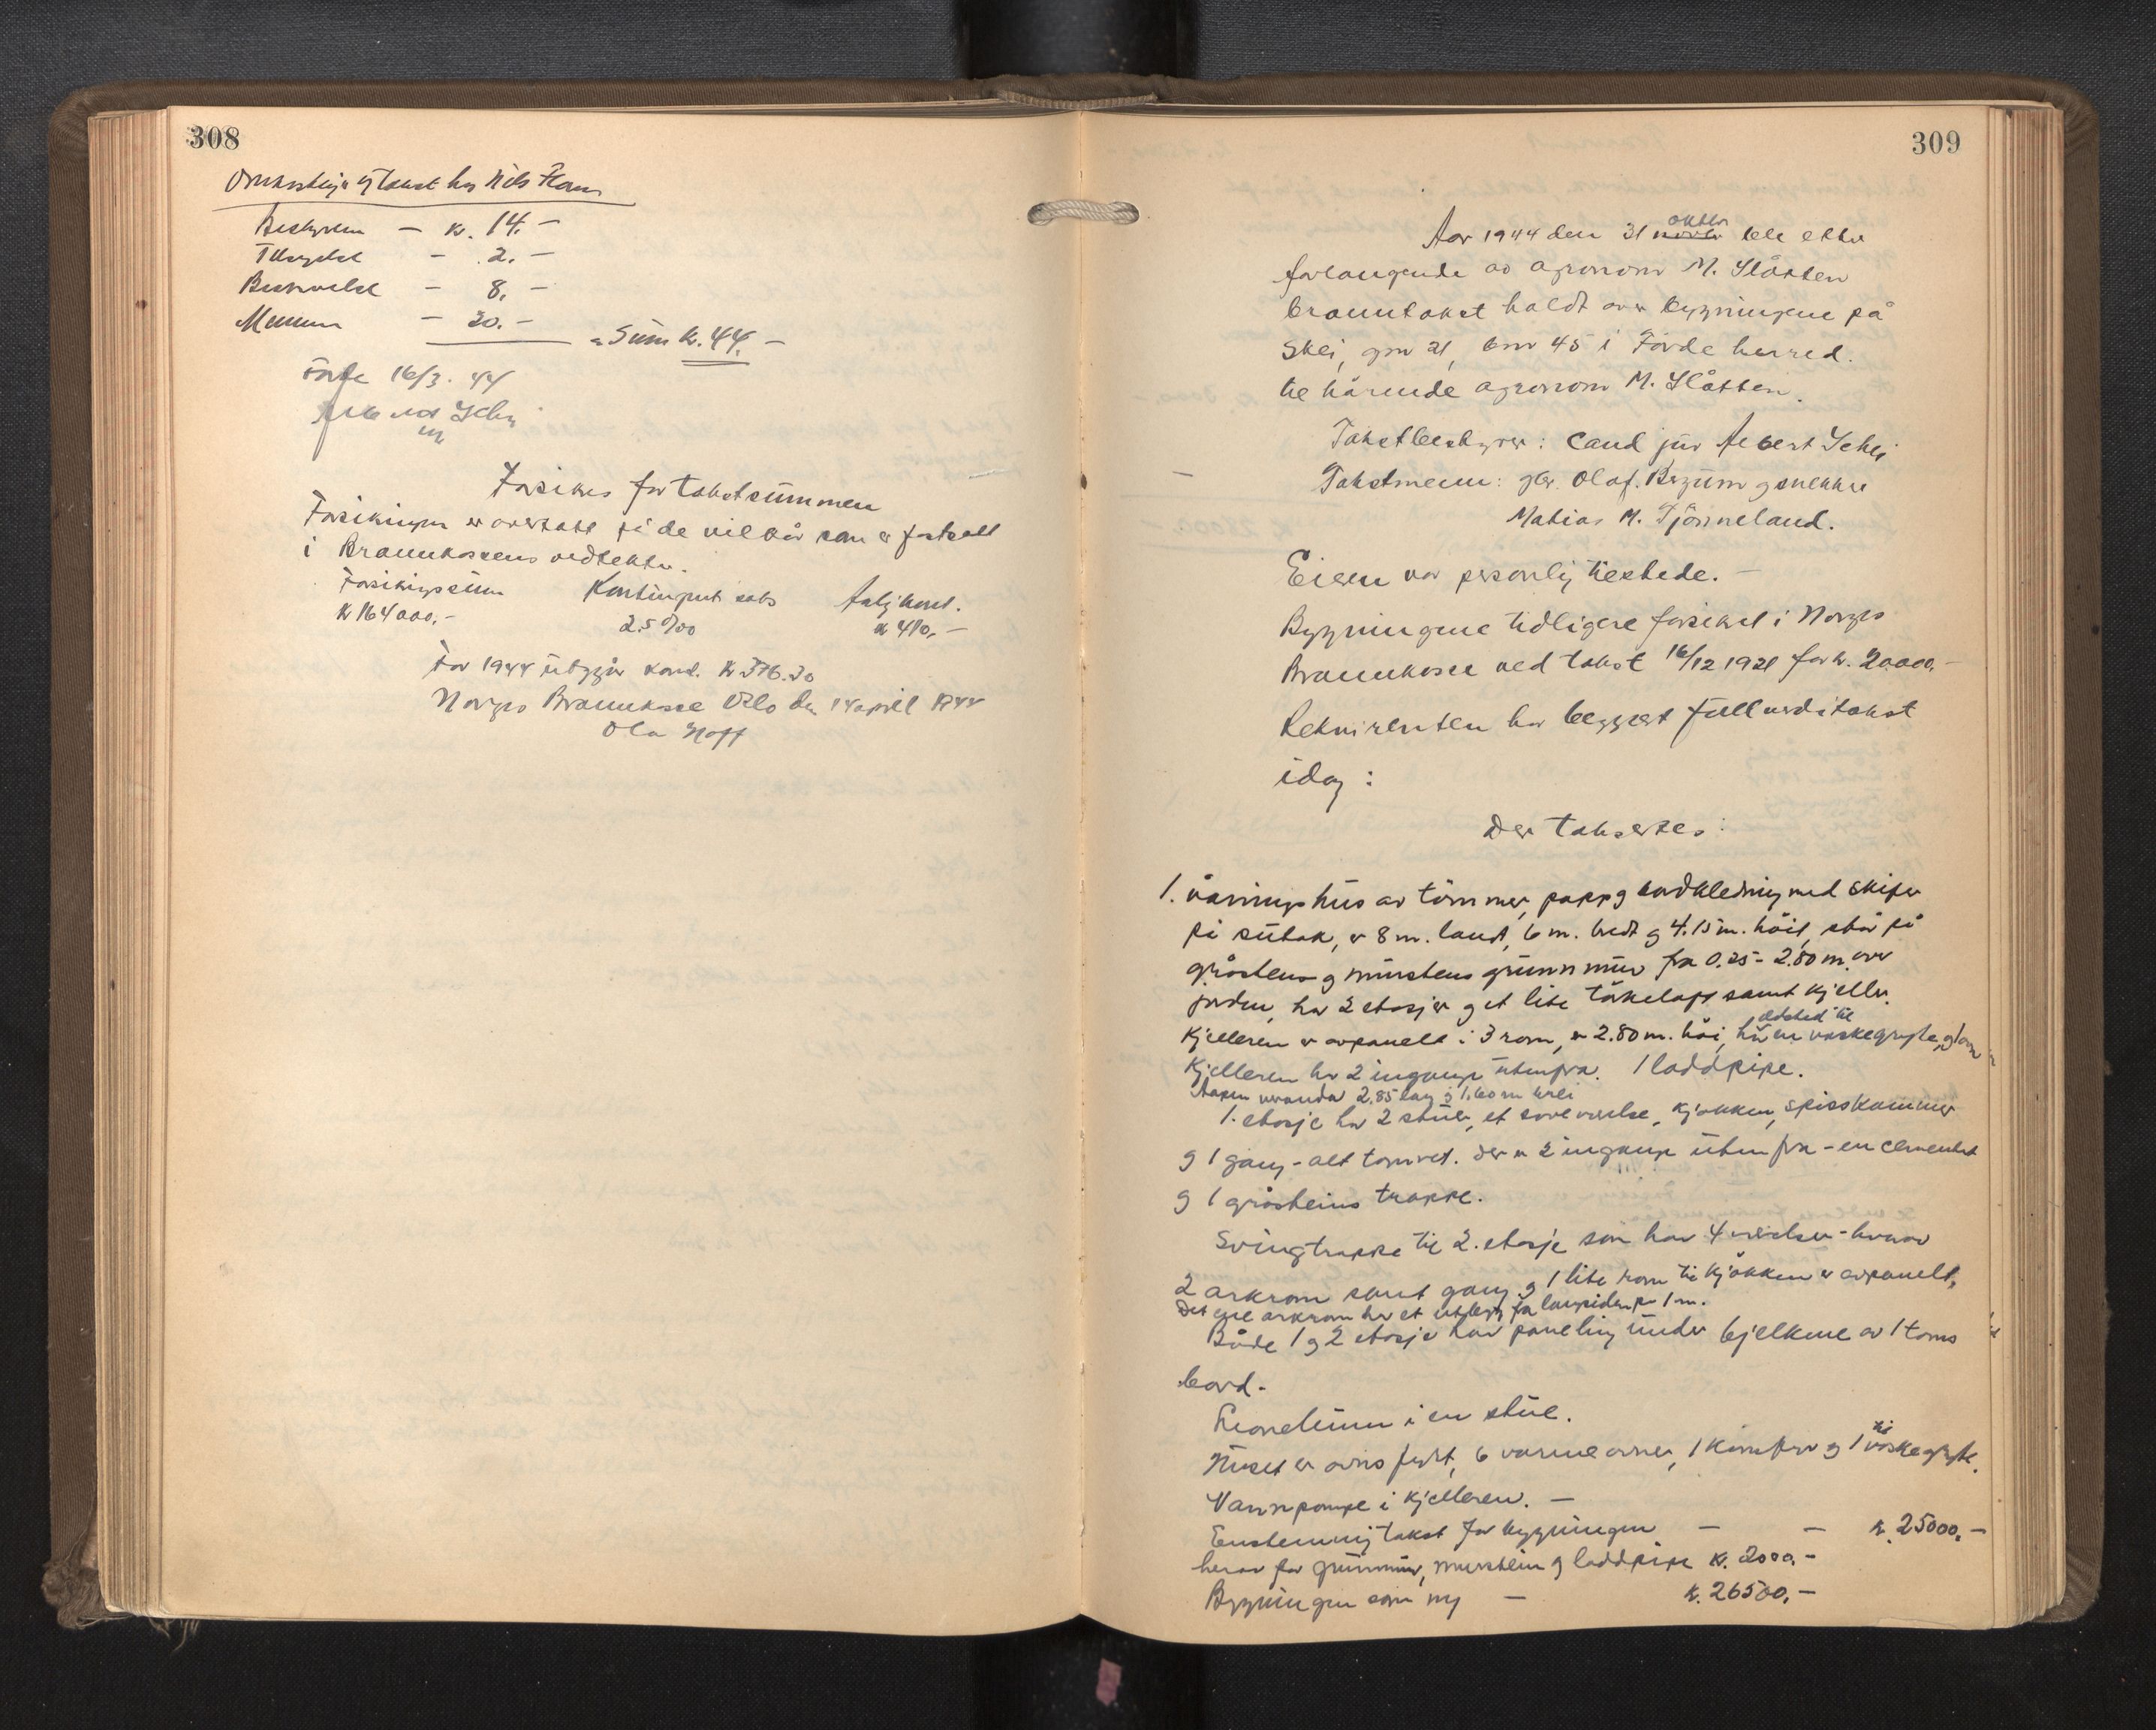 308
Omkostninger ved takst hos Nils Hans
Bestyreren — kr. 14.-
— 2. -
Beskrivelse — 8. -
Mennene — 20. -
= Sum kr. 44. -
Förde 16/3. 44
Albert Schei
Forsikres for takstsummen
Forsikringen er overtatt på de vilkår som er fastsatt
i Brannkassens vedtekter.
Forsikringssum Kontingent sats Årlig kont.
kr 164000,- 2.5 0/00 kr 410,-
For 1944 utgjör kont. kr 376.30
Norges Brannkasse Oslo den 14 april 1944
Ola Hoff
309
Aar 1944 den 31 oktbr ble etter
forlangende av agronom M. Slåtten
branntakst holdt over bygningene på
Skei, gnr 21, bnr 45 i Förde herred.
tilhörende agronom M. Slåtten.
Takstbestyrer: Cand jur Albert Schei
Takstmenn: gbr. Olaf. Bergum og snekker
Matias M. Tjönneland.
Eieren var personlig tilstede. -
Bygningene tidligere forsikret i Norges
Brannkasse ved takst 16/12 1921 for kr. 20.000.-
Rekvirenten har begjært fullverditakst
idag :
Der takseres:
1. våningshus av tömmer, papp og bordkledning med skifer
på sutak, er 8 m. langt, 6 m. bredt og 4.15 m. höit, står på
gråstens og murstens grunnmur fra 0.25 - 2.80 m. over
jorden, har 2 etasjer og et lite törkeloft samt kjeller.
Kjelleren er avpanelt i 3 rom, er 2.80 m. höi, har en ildsted til vaskegryte,
Kjelleren har 2 inganger utenfra. 1 loddpipe.
Åpen veranda 2.85 lang og 1.60 m brei
1. etasje har 2 stuer, et soveværelse, kjökken, spisskammer
og 1 gang - alt tomret. Der er 2 inganger utenfra - en cementert
og 1 gråsteins trappe.
Svingtrappe til 2. etasje som har 4 værelser - hvorav
2 arkrom samt gang og 1 lite rom til kjökken er avpanelt,
Det ene arkrom har et utbygg fra langsiden på 1 m.
Både 1 og 2 etasje har paneling under bjelkene av 1 toms
bord.
Linoleum i en stue.
Huset er ovnsfyrt, 6 varmeovner, 1 komfyr og 1 til vaskegryte.
Vannpompe i kjelleren. -
Enstemmig takst for bygningen — — kr. 25000.-
herav for grunnmur, murstein og loddpipe kr. 2000.-
Bygningen som ny — kr. 26500.-